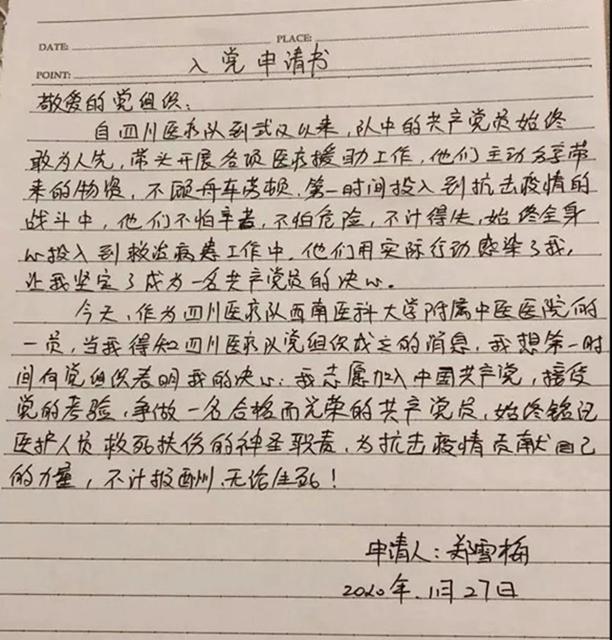 DATE: PLACE:
POINT: 入党申请书
敬爱的党组织：
自四川医疗队到武汉以来，队中的共产党员始终
敢为人先，带头开展各项医疗援助工作，他们主动分享带
来的物资，不顾舟车劳顿，第一时间投入到抗击疫情的
战斗中，他们不怕辛苦，不怕危险，不计得失，始终全身
心投入到救治病患工作中，他们用实际行动感染了我，
让我坚定了成为一名共产党员的决心。
今天，作为四川医疗队西南医科大学附属中医医院的
一员，当我得知四川医疗队党组织成立的消息，我想第一时
间向党组织表明我的决心：我志愿加入中国共产党，接受
党的考验，争做一名合格而光荣的共产党员，始终铭记
医护人员救死扶伤的神圣职责，为抗击疫情贡献自己
的力量，不计报酬，无论生死！
申请人：郑雪梅
2020年.1月27日